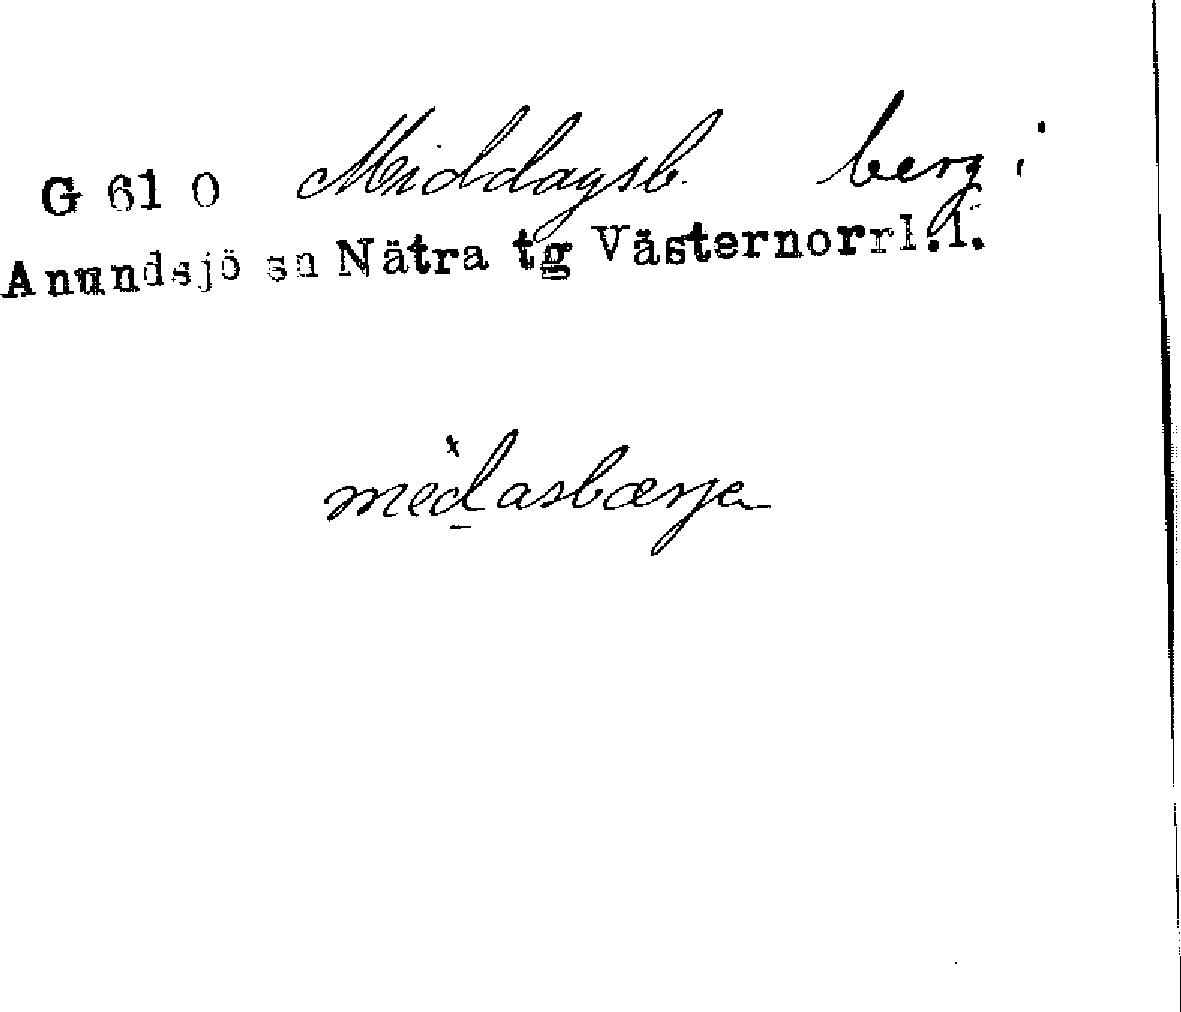 G 61 0 Middagsb. berg i
Anundsjö sn Nätra tg Västernorrl.l.
medasbærjə